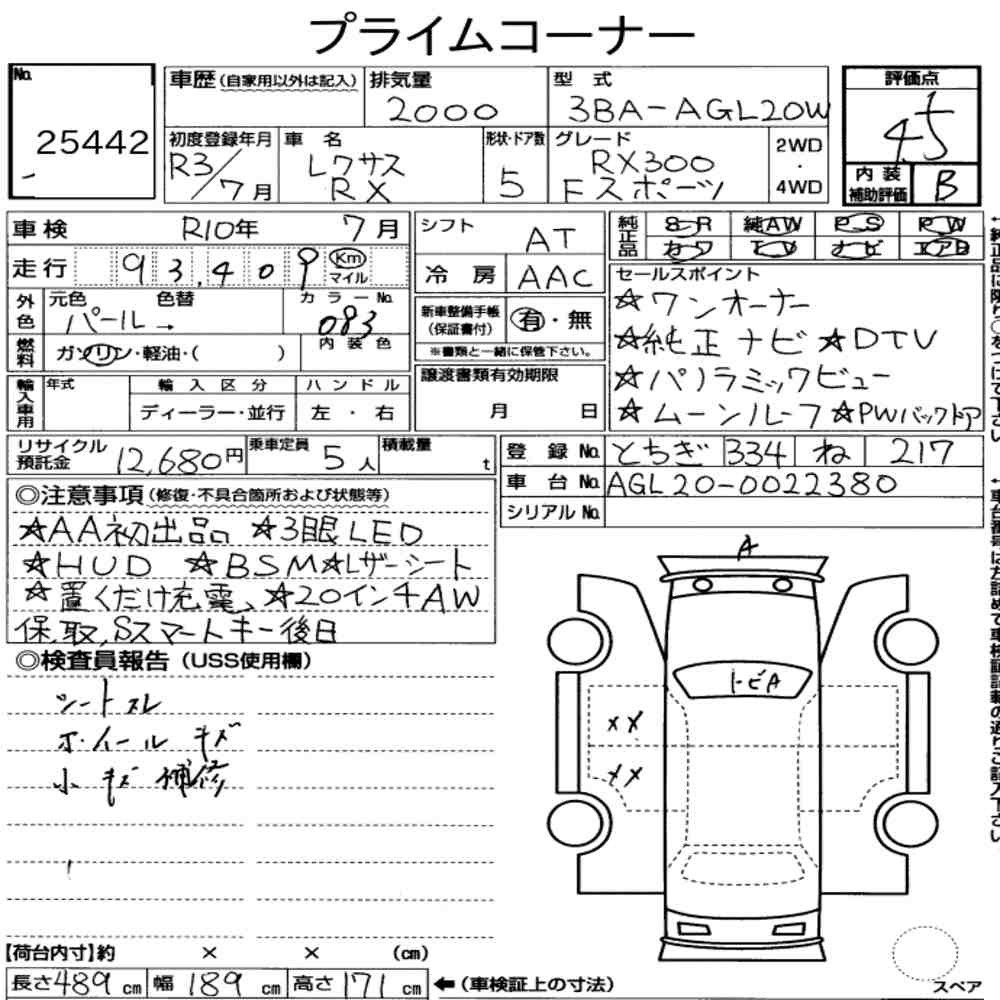 プライムコーナー
No. 25442
車歴（自家用以外は記入）
排気量 2000
型式 3BA-AGL20W
評価点 4.5
初度登録年月 R3/7月
車名 レクサス RX
形状・ドア数 5
グレード RX300 Fスポーツ
2WD ・ 4WD
内装補助評価 B
車検 R10年 7月
走行 93,409 Km マイル
シフト AT
冷房 AAC
純正品 S-R 純AW P.S P.W
カワ T V ナビ エアB
外色 元色 色替 パール→
カラーNo. 083
内装色
燃料 ガソリン・軽油・( )
新車整備手帳（保証書付） 有・無
※書類と一緒に保管下さい。
輸入車用 年式
輸入区分 ディーラー・並行
ハンドル 左・右
譲渡書類有効期限 月 日
セールスポイント
☆ワンオーナー
☆純正ナビ☆DTV
☆パノラミックビュー
☆ムーンルーフ☆PWバックドア
リサイクル預託金 12,680円
乗車定員 5人
積載量 t
登録No. とちぎ 334 ね 217
車台No. AGL20-0022380
シリアルNo.
◎注意事項（修復・不具合箇所および状態等）
☆AA初出品 ☆3眼LED
☆HUD ☆BSM☆Lザーシート
☆置くだけ充電、☆20インチAW
保,取,Sスマートキー後日
◎検査員報告（USS使用欄）
シートスレ
ホイールキズ
小キズ補修
A
トビA
XX
XX
【荷台内寸】約 × × (cm)
長さ489cm 幅189cm 高さ171cm ←（車検証上の寸法）
スペア